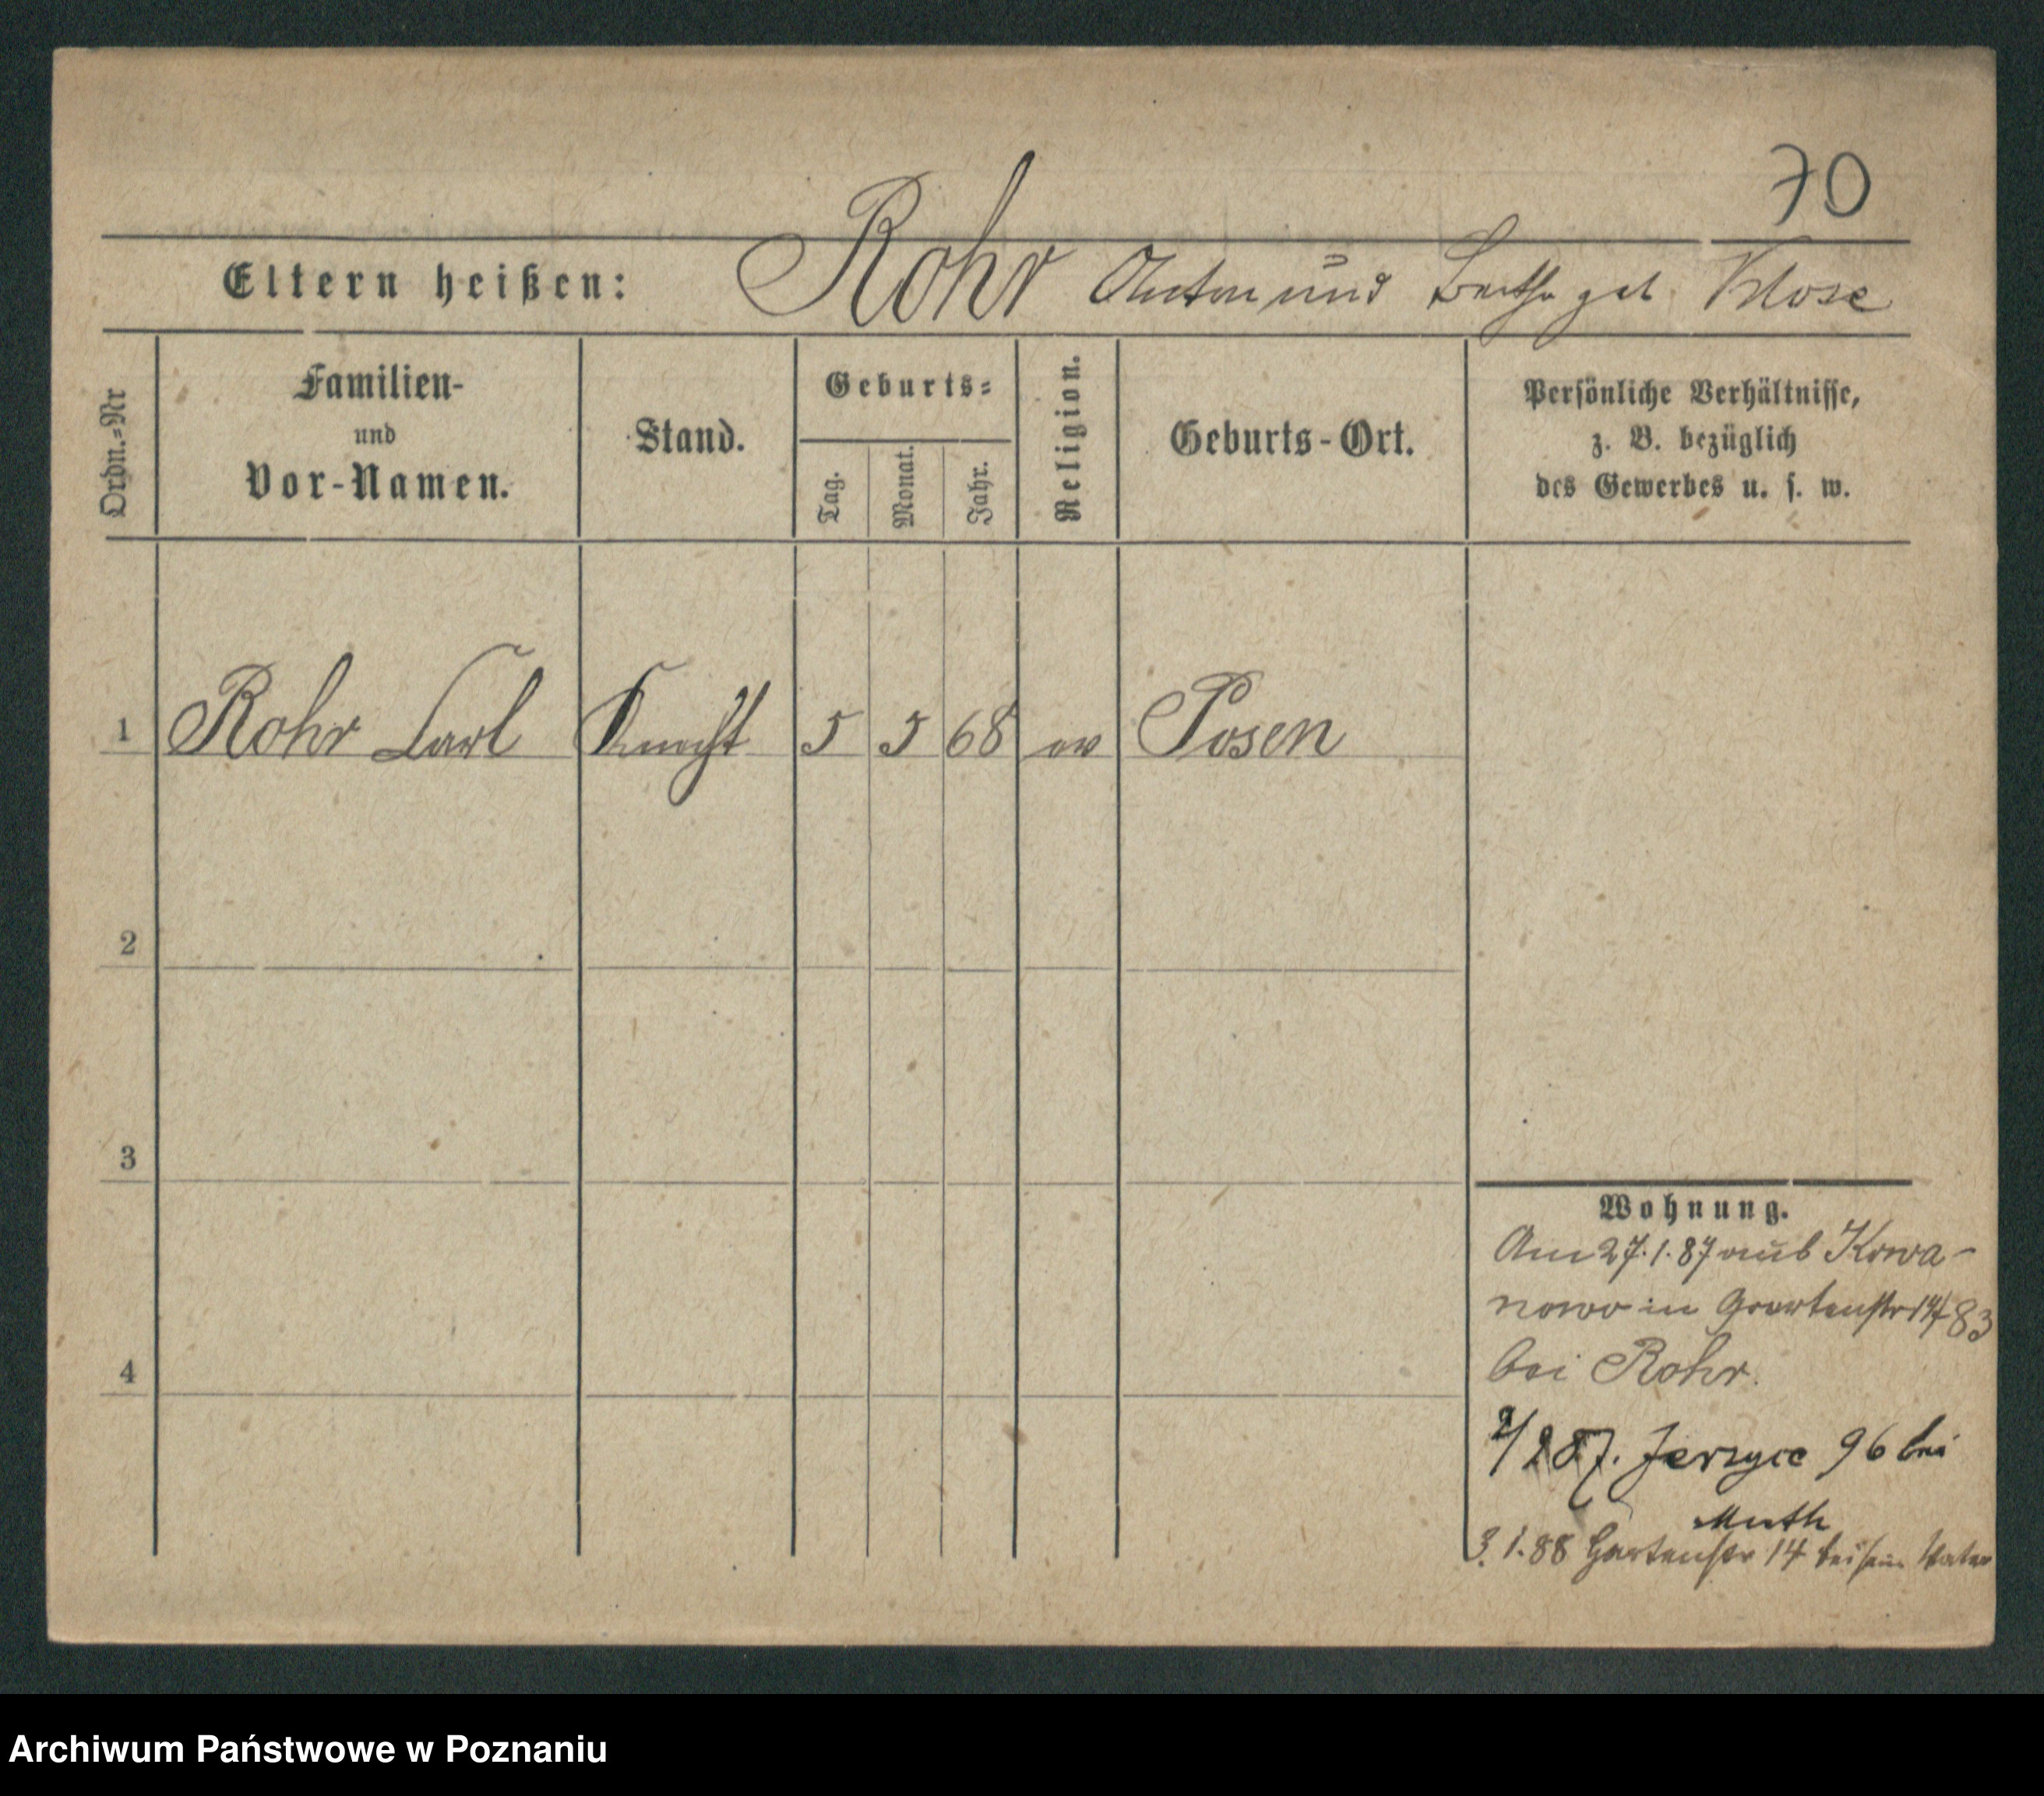 70
Eltern heißen: Rohr Anton und Bertha geb Klose
Ordn.=Nr
Familien-
und
Vor-Namen.
Stand.
Geburts=
Tag.
Monat.
Jahr.
Religion.
Geburts-Ort.
Persönliche Verhältnisse,
z. B. bezüglich
des Gewerbes u. s. w.
1 Rohr Carl Knecht 5 5 68 ev Posen
2
3
4
Wohnung.
Am 27.1.87 aus Kowa-
nowo in Gartenstr 14
bei Rohr.
87. Jerzyce 96 bei
Muth
3.1.88 Gartenstr 14 bei sein Vater
Archiwum Państwowe w Poznaniu